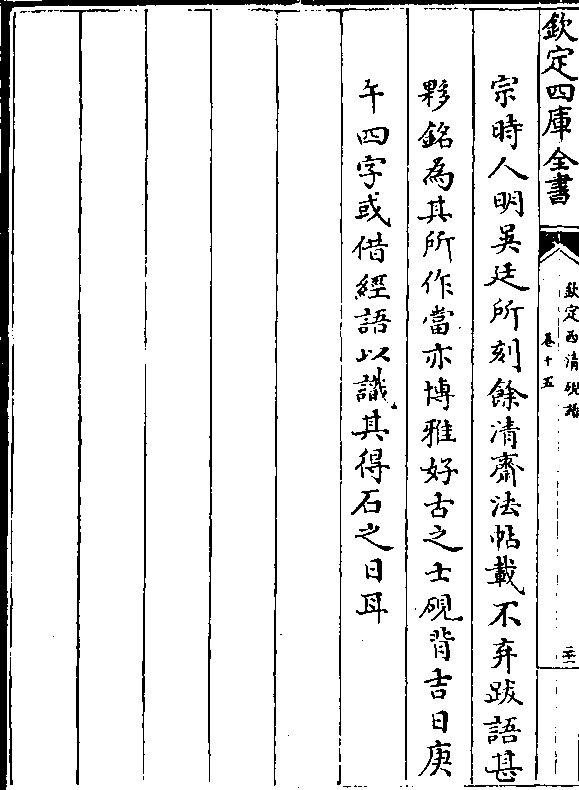 欽定四庫全書
欽定西清硯譜
卷十五
宗時人明吳廷所刻餘清齋法帖載不弃跋語甚
夥銘為其所作當亦博雅好古之士硯背吉日庚
午四字或借經語以識其得石之日耳